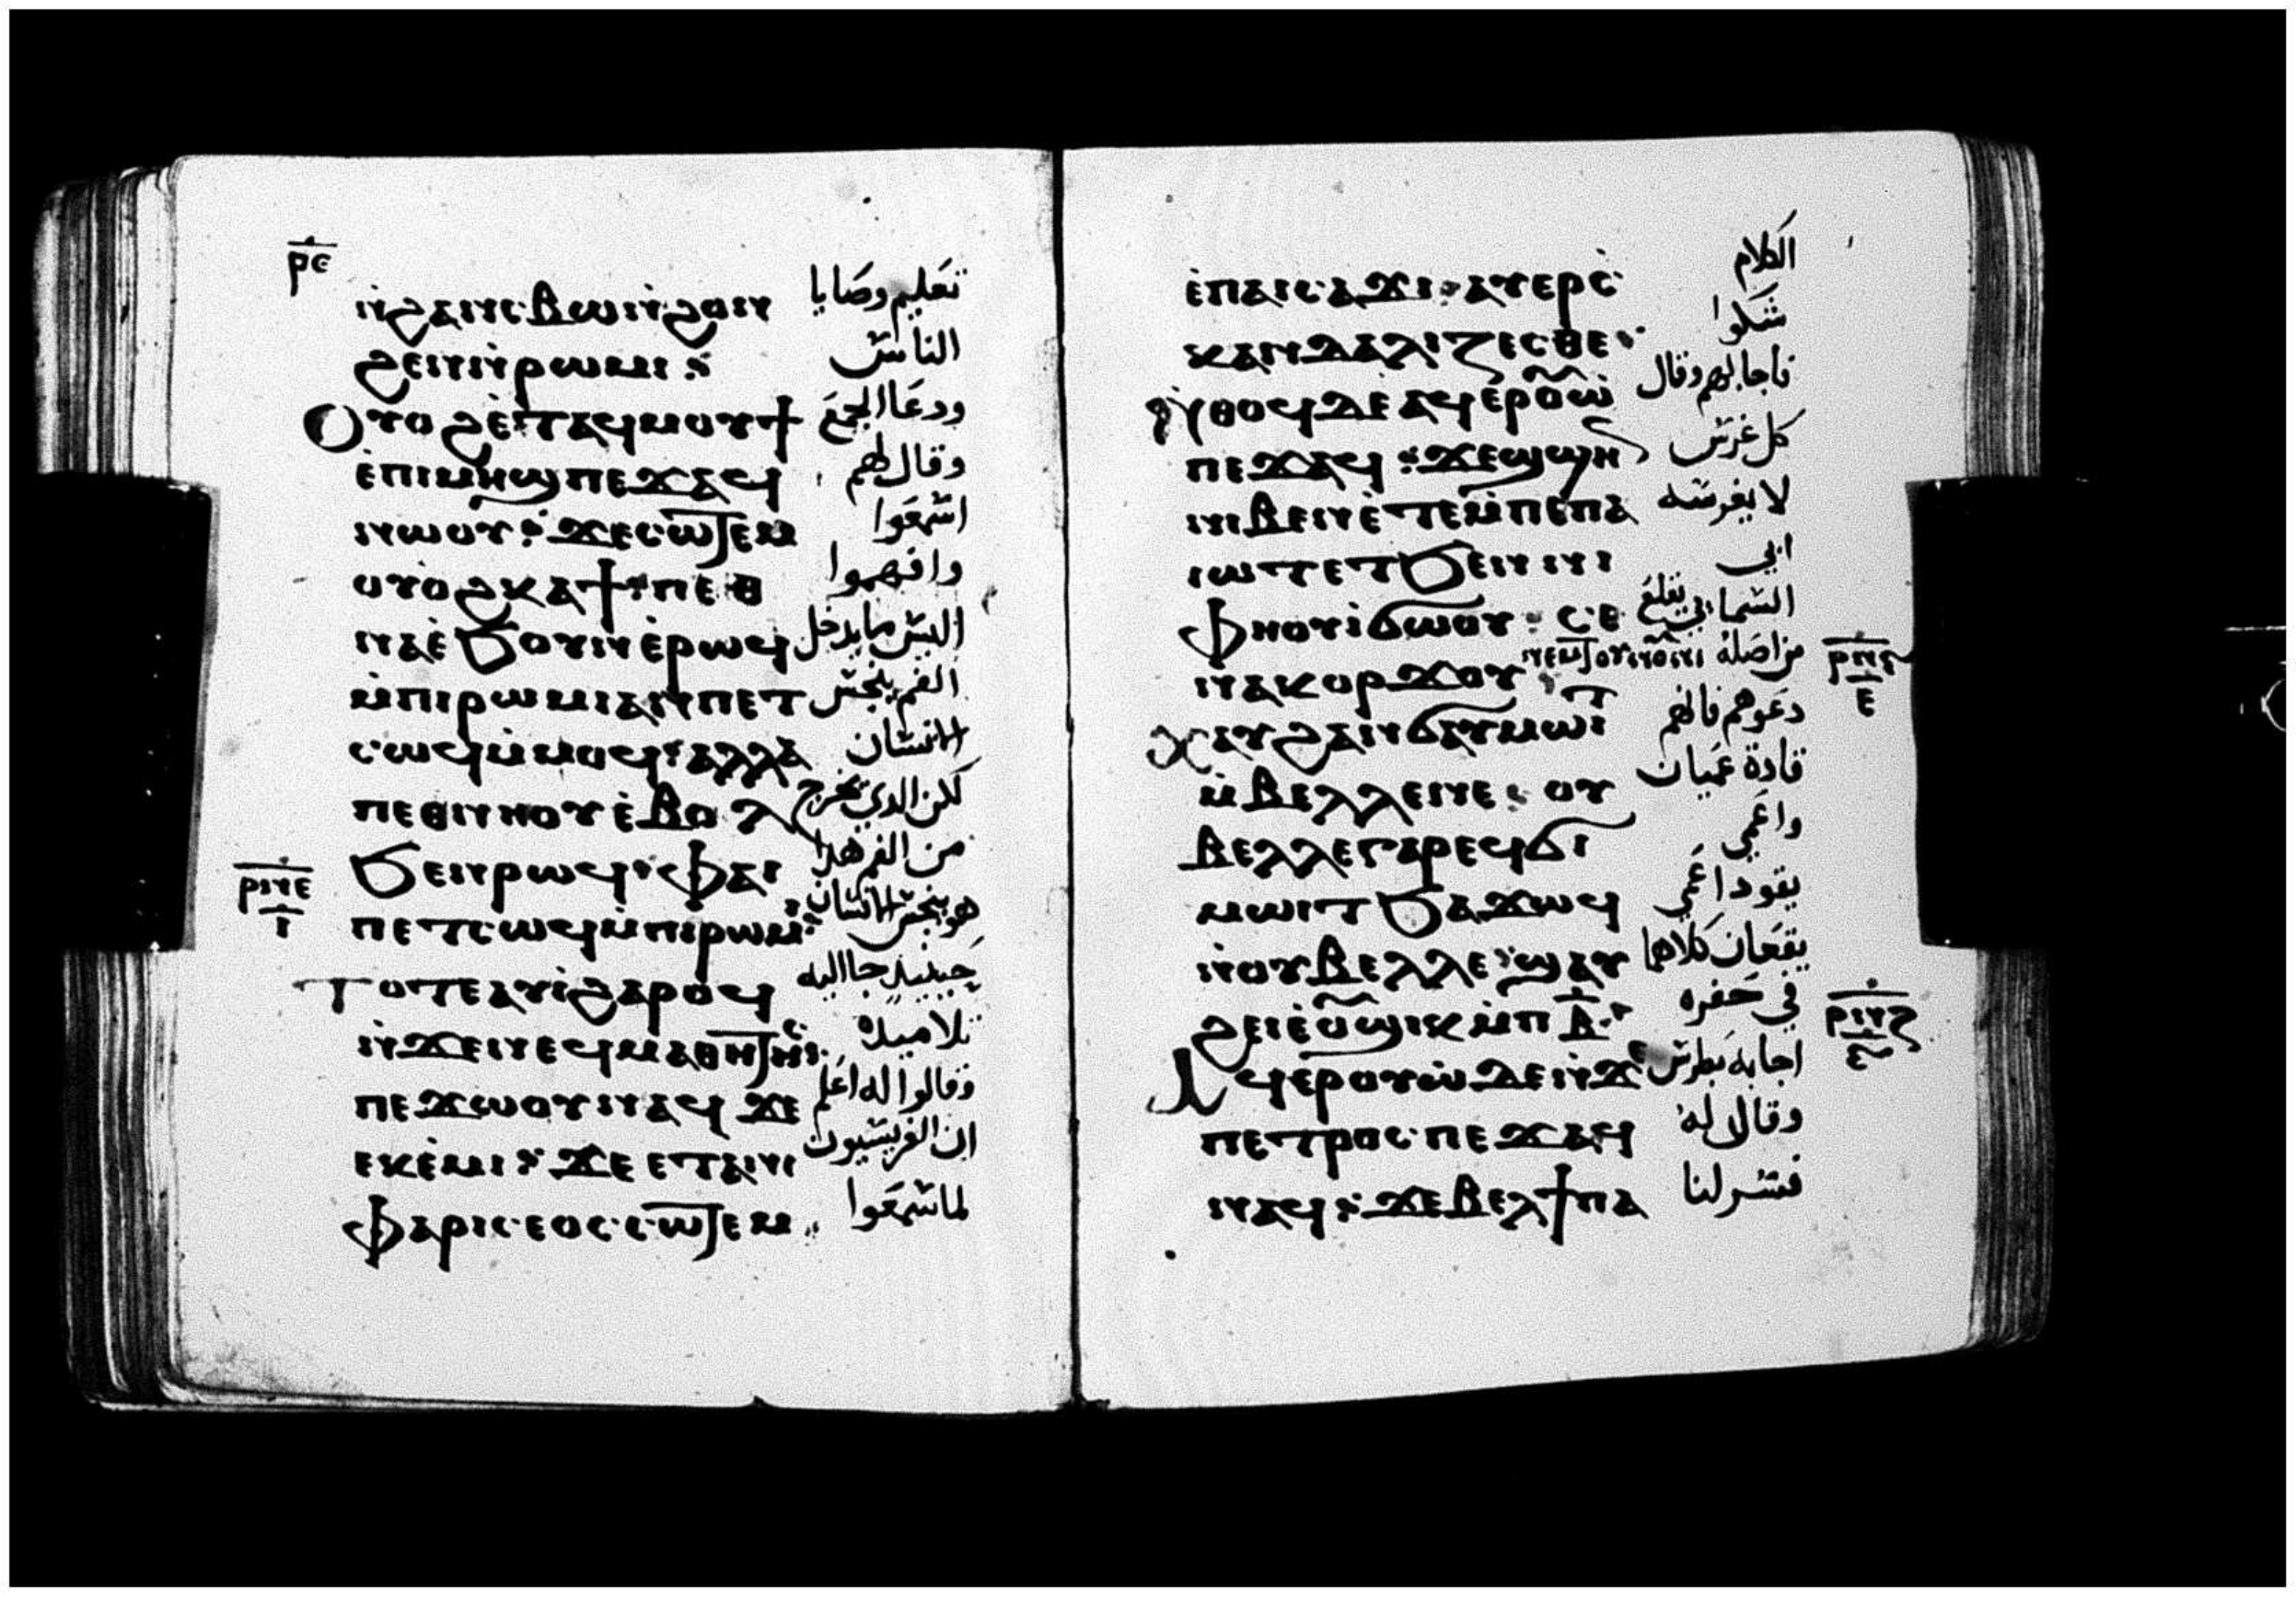 ⲣ̅ⲉ̅
ⲛ̀ϩⲁⲛⲥⲃⲱⲛ̀ϩⲟⲛ
ϩⲉⲛⲛ̀ⲣⲱⲙⲓ:
ⲟⲩⲟϩⲉ̀ⲧⲁϥⲙⲟⲩϯ
ⲉ̀ⲡⲓⲙⲏϣⲡⲉϫⲁϥ
ⲛⲱⲟⲩ: ϫⲉⲥⲱⲧⲉⲙ
ⲟⲩⲟϩⲕⲁϯ: ⲡⲉⲑ
ⲛⲁⲉ̀ϧⲟⲩⲛⲉ̀ⲣⲱϥ
ⲙ̀ⲡⲓⲣⲱⲙⲓⲁⲛⲡⲉⲧ
ⲥⲱϥⲙ̀ⲙⲟϥ: ⲁⲗⲗⲁ
ⲡⲉⲑⲛⲏⲟⲩⲉ̀ⲃⲟⲗ
ϧⲉⲛⲣⲱϥ: ⲫⲁⲓ
ⲡⲉⲧⲥⲱϥⲙ̀ⲡⲓⲣⲱⲙⲓ:
ⲧⲟⲧⲉⲁⲩⲓ̀ϩⲁⲣⲟϥ
ⲛ̀ϫⲉⲛⲉϥⲙⲁⲑⲏⲧⲏⲥ:
ⲡⲉϫⲱⲟⲩⲛⲁϥ ϫⲉ
ⲉⲕⲉ̀ⲙⲓ: ϫⲉⲉⲧⲁⲛⲓ
ⲫⲁⲣⲓⲥⲉⲟⲥⲥⲱⲧⲉⲙ
ⲣⲛⲉ
ⲓ
تعليم وصايا
الناس
ودعا الجمع
وقال لهم
اسمعوا
وافهموا
ليس ما يدخل
الفم ينجس
الانسان
لكن الدي يخرج
من الفم هدا
هو ينجس الانسان
حينيد جا اليه
تلاميده
وقالوا له اعلم
ان الفريسيون
لما سمعوا
ⲉ̀ⲡⲁⲓⲥⲁϫⲓ: ⲁⲩⲉⲣⲥ
ⲕⲁⲛⲇⲁⲗⲓⲍⲉⲥⲑⲉ:
ⲛ̀ⲑⲟϥⲇⲉⲁϥⲉⲣⲟⲩⲱ̀
ⲡⲉϫⲁϥ: ϫⲉϣϣⲏ
ⲛⲓⲃⲉⲛⲉ̀ⲧⲉⲙ̀ⲡⲉⲡⲁ
ⲓⲱⲧⲉⲧϧⲉⲛⲛⲓ
ⲫⲏⲟⲩⲓ̀ϭⲱⲟⲩ: ⲥⲉ
ⲛⲁⲕⲟⲣϫⲟⲩ ⲛⲉⲙⲧⲟⲩⲛⲟⲩⲛⲓ
ⲭⲁⲩϩⲁⲛϭⲁⲩⲙⲱⲓⲧ
ⲙ̀ⲃⲉⲗⲗⲉⲛⲉ: ⲟⲩ
ⲃⲉⲗⲗⲉⲅⲁⲣⲉϥϭⲓ
ⲙⲱⲓⲧϧⲁϫⲱϥ
ⲛ̀ⲟⲩⲃⲉⲗⲗⲉ: ϣⲁⲩ
ϩⲉⲓⲉ̀ⲟⲩϣⲓⲕⲙ̀ⲡⲃ̅:
ⲁϥⲉⲣⲟⲩⲱ̀ⲇⲉⲛ̀ϫⲉ
ⲡⲉⲧⲣⲟⲥⲡⲉϫⲁϥ
ⲛⲁϥ: ϫⲉⲃⲉⲗϯⲡⲁ
الكلام
شكوا
فاجابهم وقال
كل غرس
لا يغرسه
ابي
السمايي يقلع
من اصله
دعوهم فانهم
قادة عميان
واعمي
يقود اعمي
يقعان كلاهما
في حفره
اجابه بطرس
وقال له
فسر لنا
ⲉ
ⲣⲛⲍ